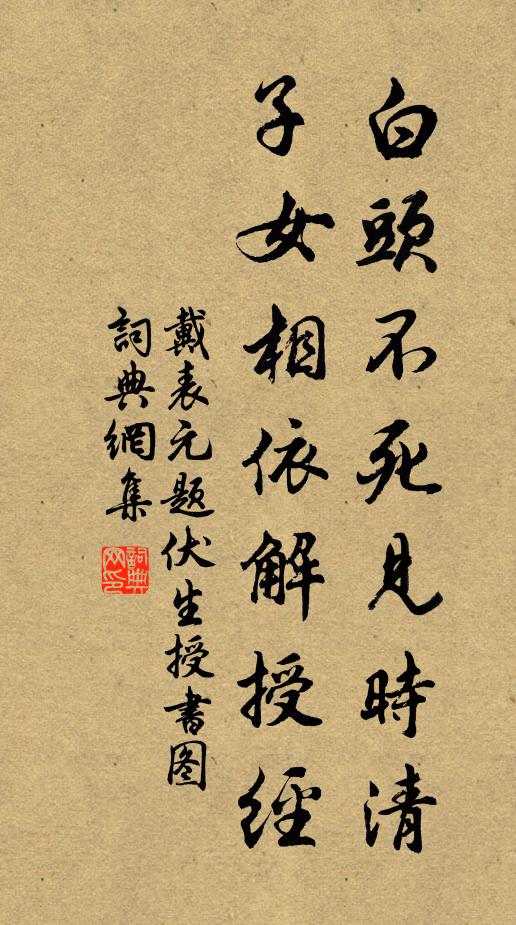 白頭不死見時清
子女相依解授經
戴表元題伏生授書图
詞典網集
詞典
网印